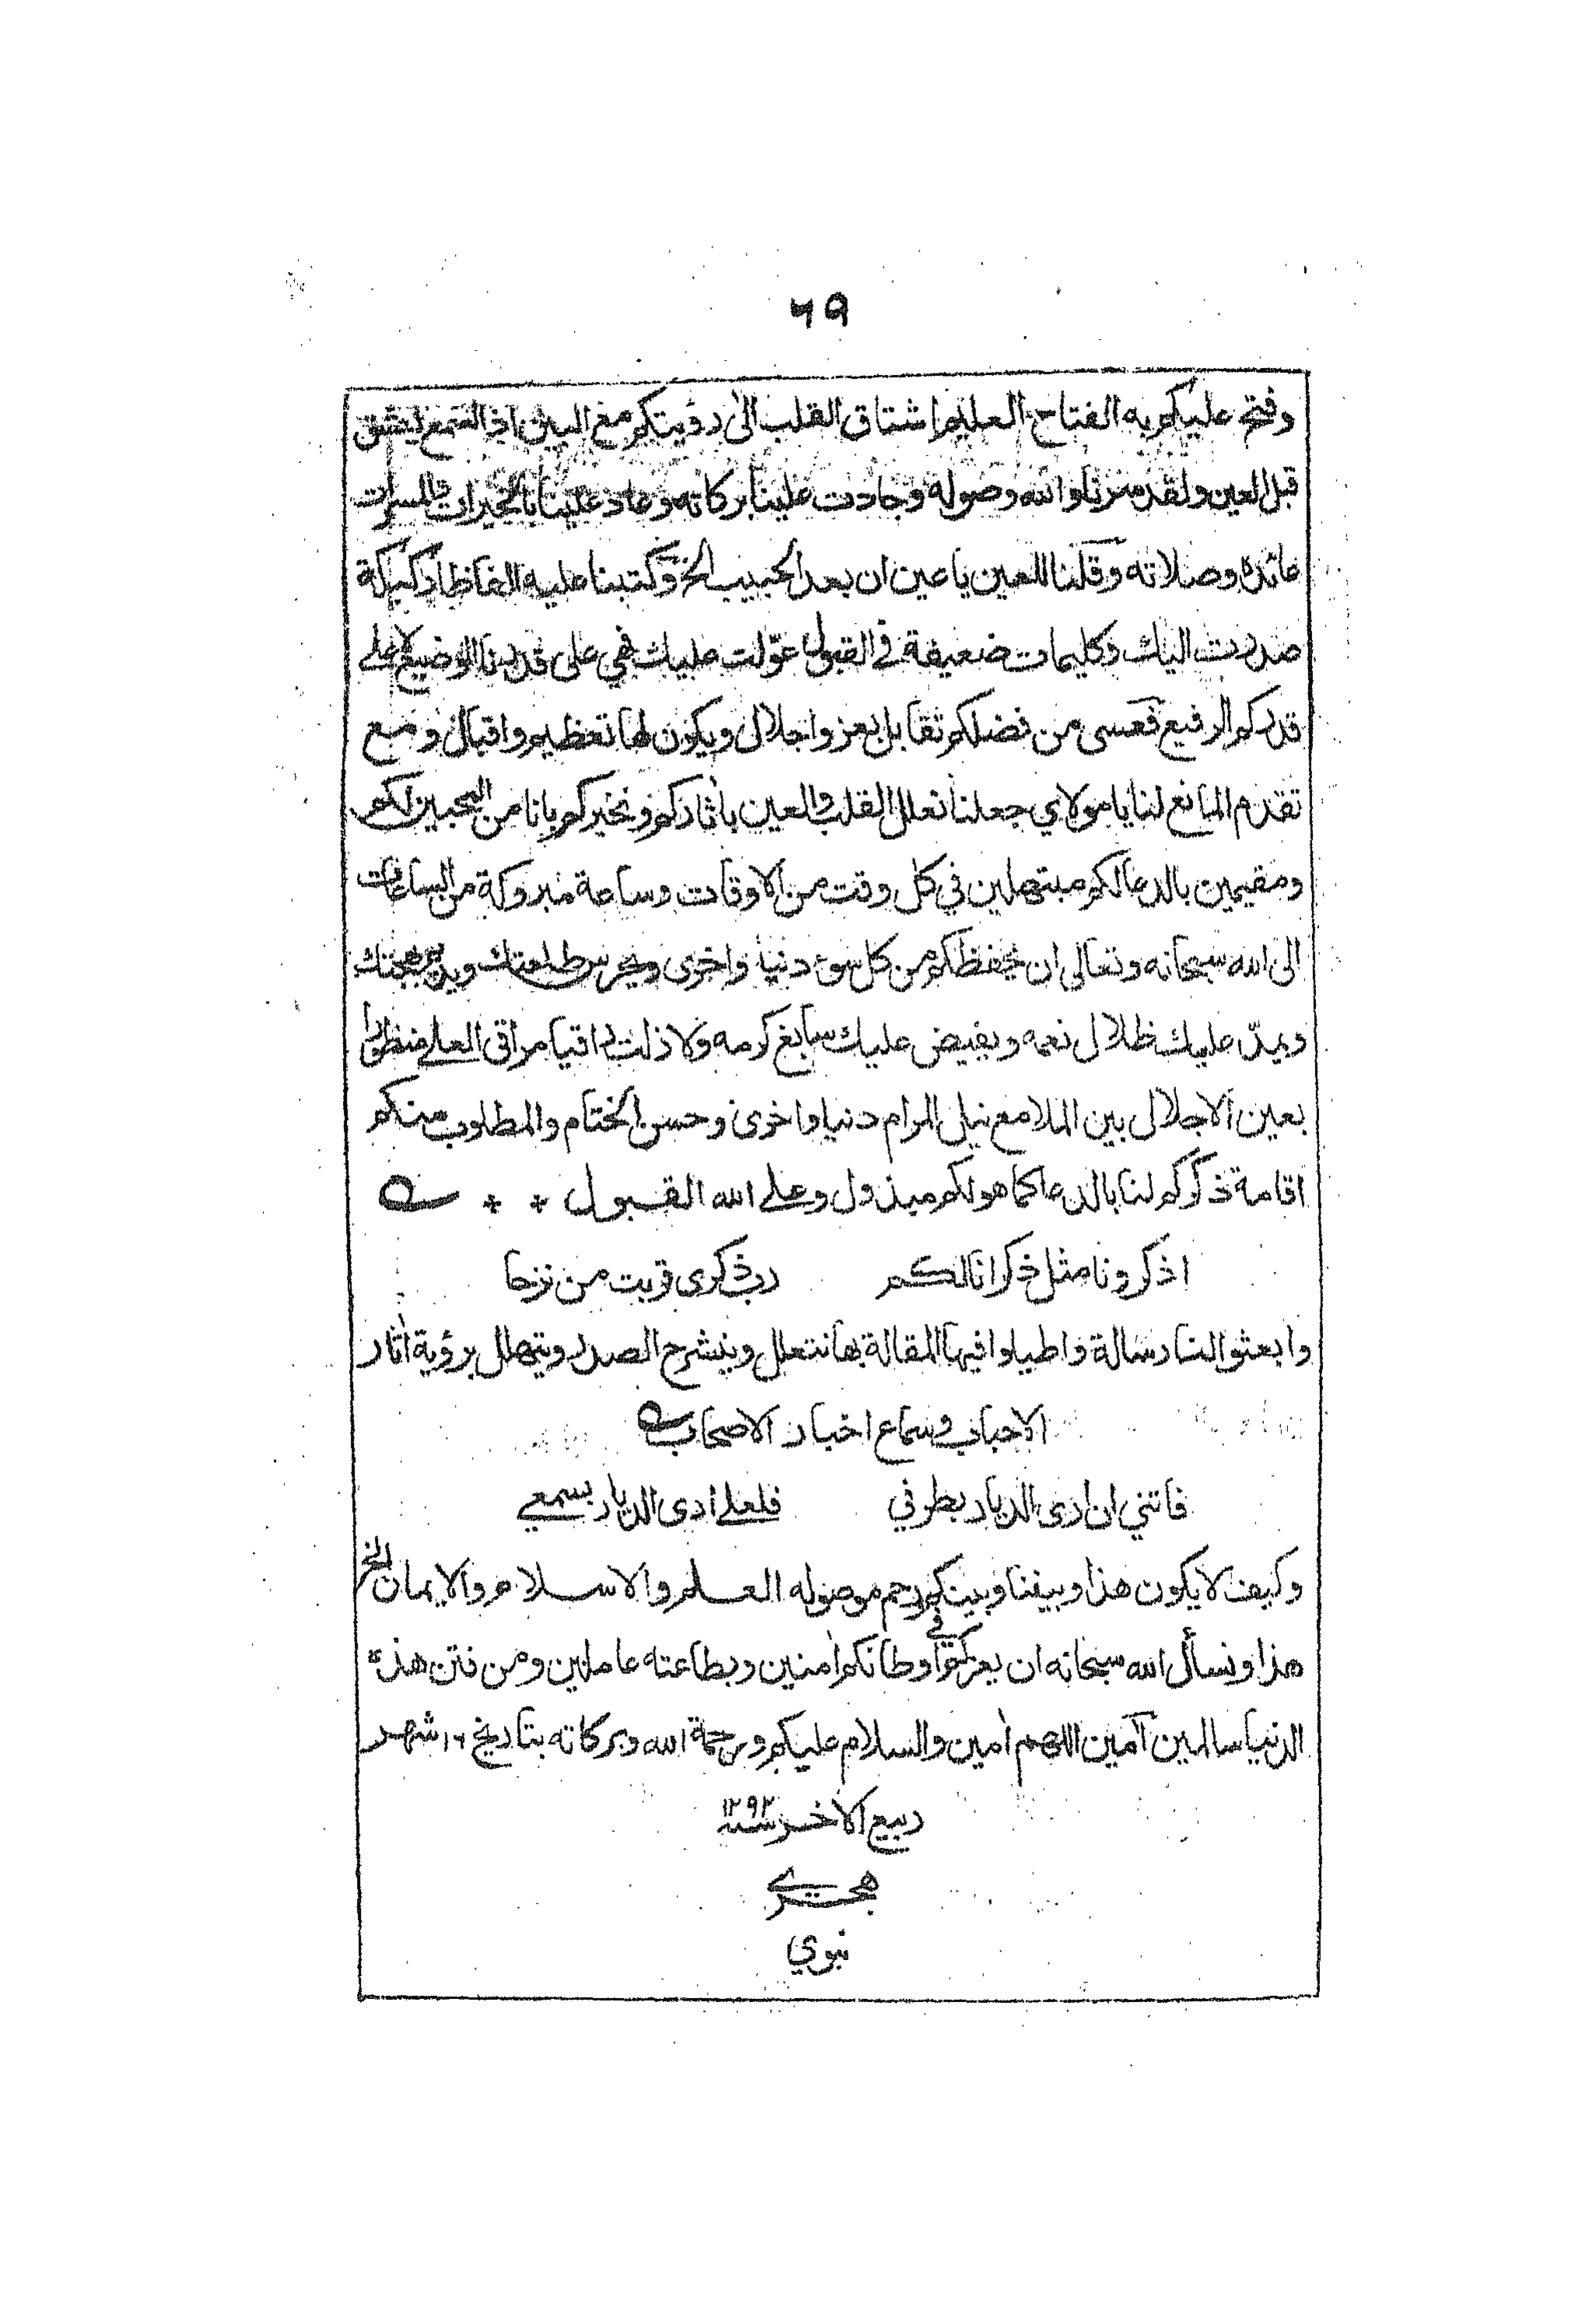 ٦٩
وفتح عليكم به الفتاح العليم اشتاق القلب الى رؤيتكم مع البين اذ السمع ليعشق
قبل العين ولقد سرنا والله وصوله وجادت علينا بركاته وعاد علينا بالخيرات والمسرات
عائده وصلاته وقلنا للعين يا عين ان بعد الحبيب الخ وكتبنا عليه الفاظا ركيكة
صدرت اليك وكليمات ضعيفة في القبول عوّلت عليك فهي على قدرنا الوضيع لا على
قدركم الرفيع فعسى من فضلكم تقابل بعز واجلال ويكون لها تعظيم واقبال ومع
تقدم المانع لنا يا مولاي جعلنا نعلل القلب والعين باثاركم ونخبركم بانا من المحبين لكم
ومقيمين بالدعا لكم مبتهلين في كل وقت من الاوقات وساعة مبروكة من الساعات
الى الله سبحانه وتعالى ان يحفظكم من كل سوء دنيا واخرى ويحرس طلعتك ويديم بهجتك
ويمدّ عليك ظلال نعمه ويفيض عليك سابغ كرمه ولا زلت راقيا مراقى العلى منظورا
بعين الاجلال بين الملا مع نيل المرام دنيا واخرى وحسن الختام والمطلوب منكم
اقامة ذكركم لنا بالدعا كما هو لكم مبذول وعلى الله القبول * *
اذكرونا مثل ذكرانا لكم رب ذكرى قربت من نزحا
وابعثوا لنا رسالة واطيلوا فيها المقالة بها نتعلل وينشرح الصدر ويتهلل برؤية اثار
الاحباب وسماع اخبار الاصحاب
فاتني ان ارى الديار بطرفي فلعلى ارى الديار بسمعي
وكيف لا يكون هذا وبيننا وبينكم رحم موصوله العلم والاسلام والايمان الخ
هذا ونسأل الله سبحانه ان يعزكم في اوطانكم امنين وبطاعته عاملين ومن فتن هذه
الدنيا سالمين آمين اللهم امين والسلام عليكم ورحمة الله وبركاته بتاريخ ١٦ شهر
ربيع الاخر سنة ١٢٩٢
هجري
نبوي